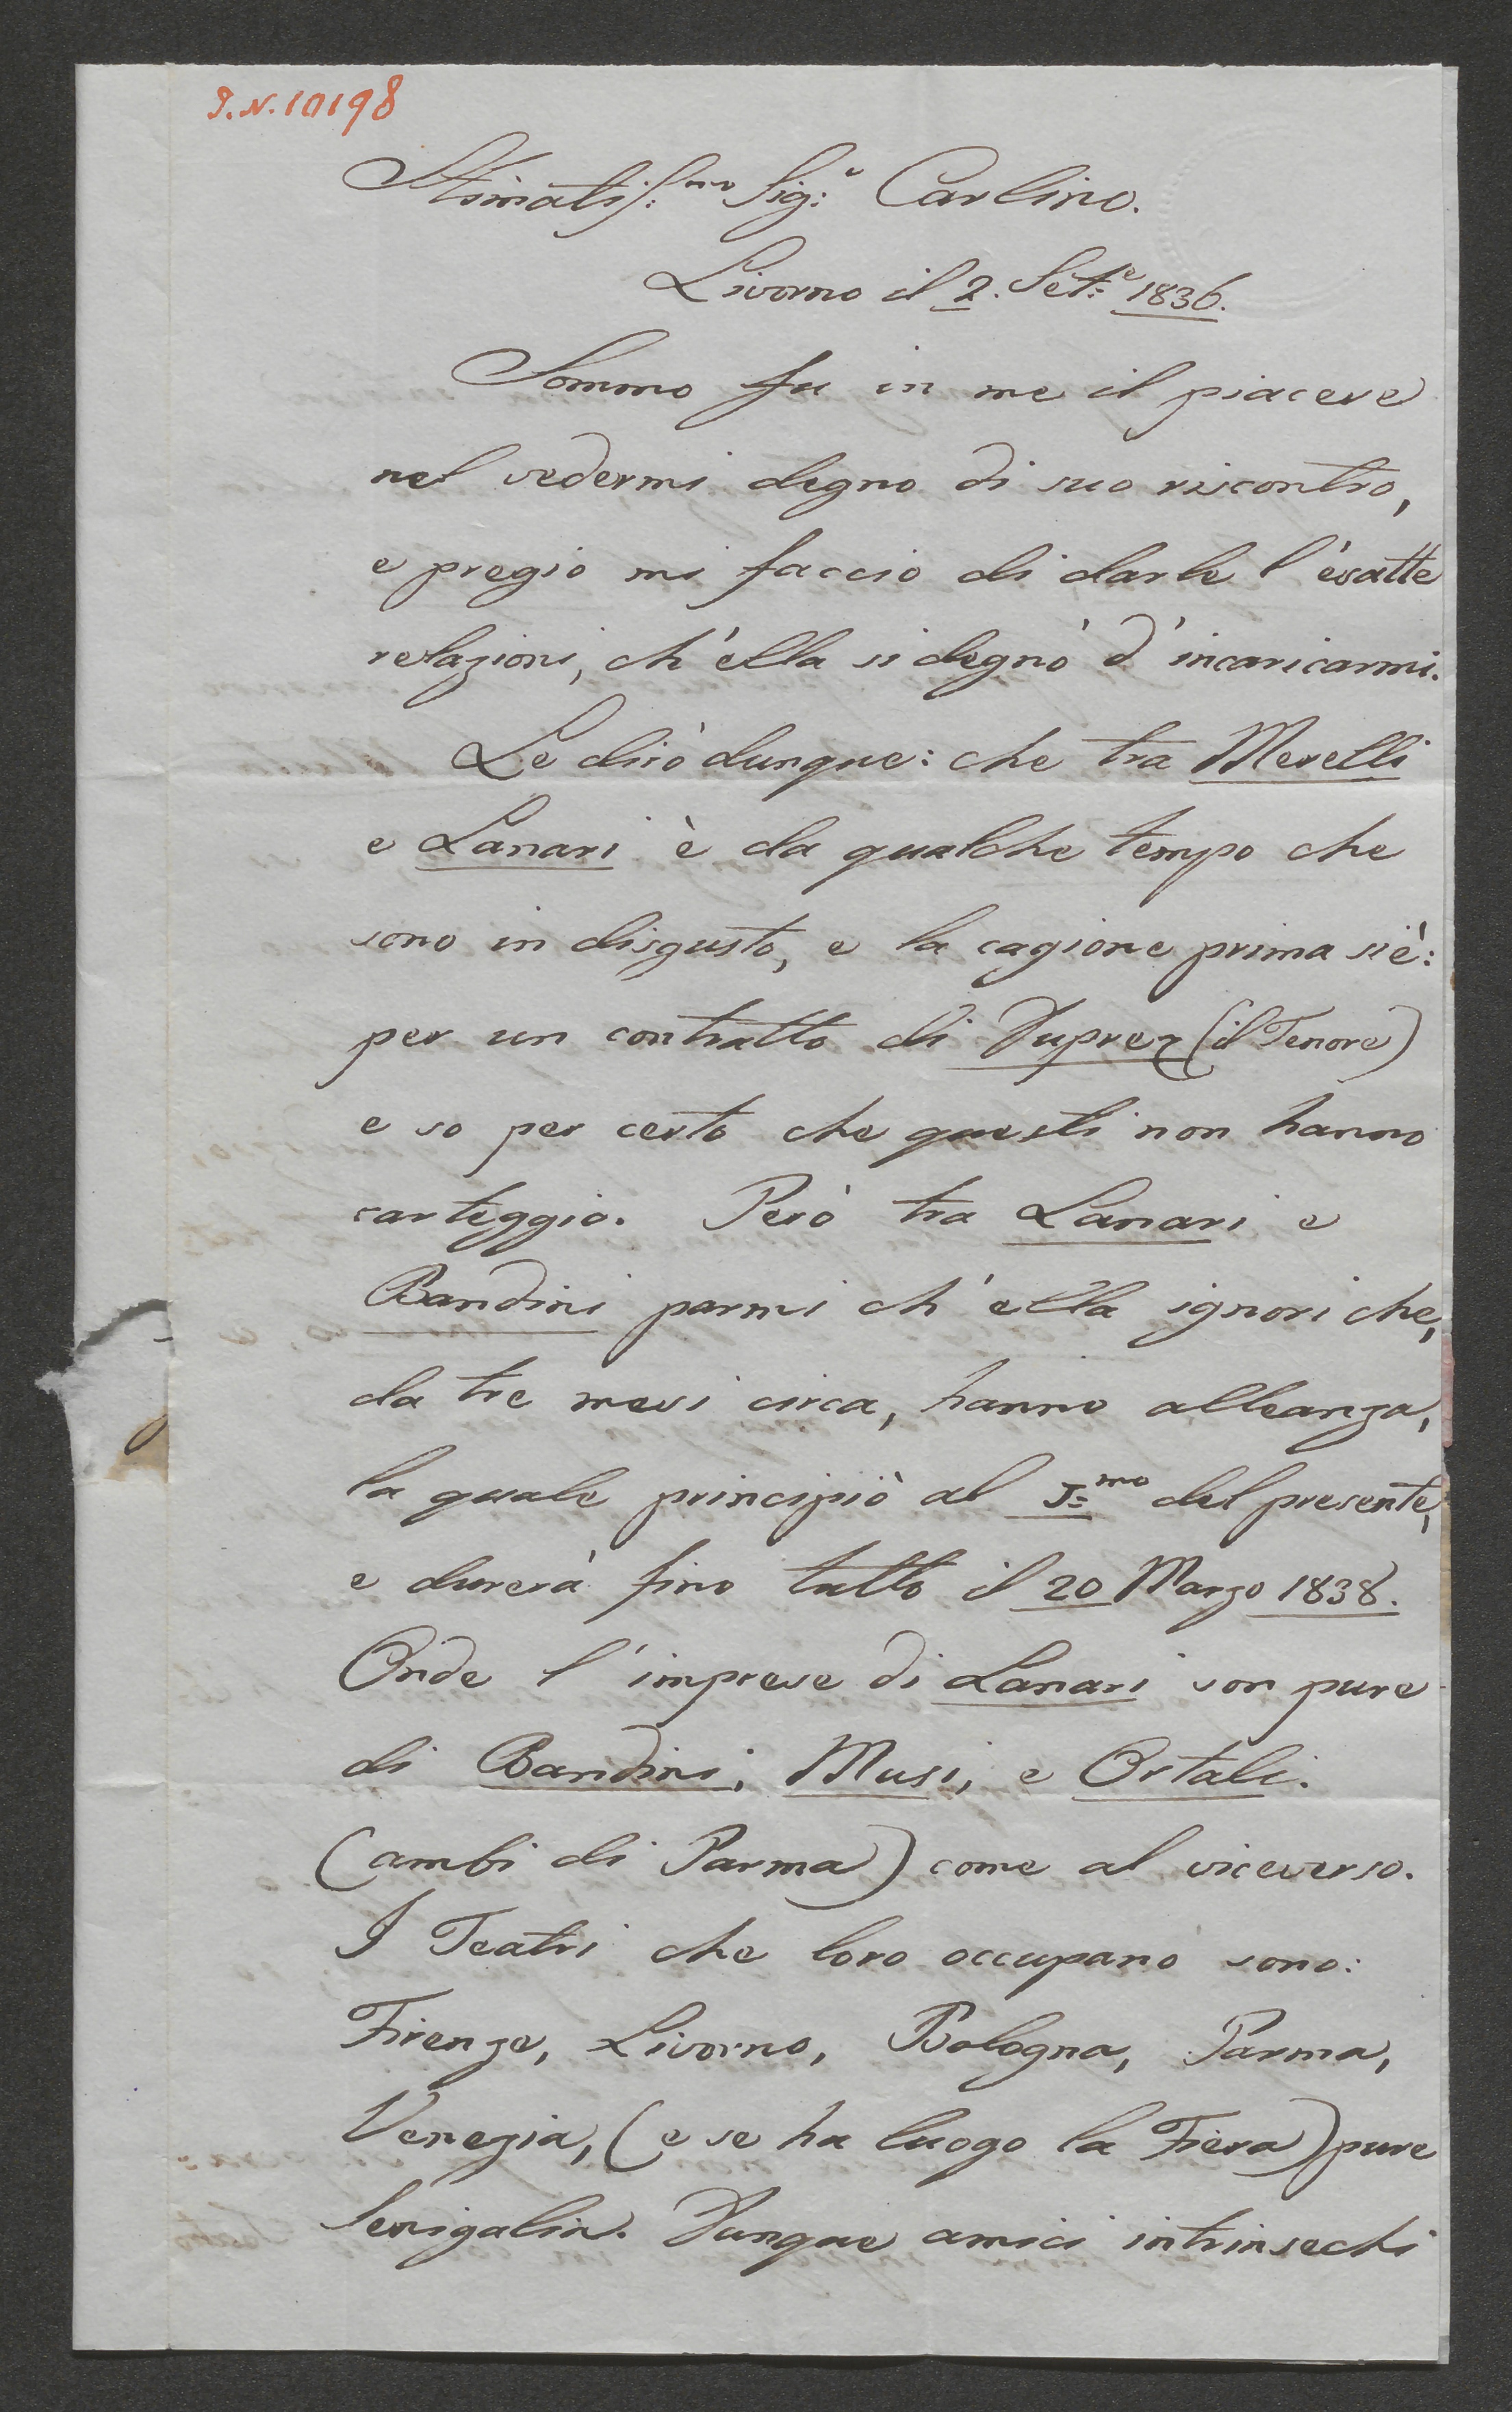 I.N.10198
Stimatis:mo Sig:r Carlino.
Livorno il 2. Set:e 1836.
Sommo fu in me il piacere
nel vedermi degno di suo riscontro,
e pregio mi faccio di darle l'esatte
relazioni, ch'ella si degnò d'incaricarmi.
Le dirò dunque: che tra Merelli
e Lanari è da qualche tempo che
sono in disgusto, e la cagione prima si è:
per un contratto di Duprez (il Tenore)
e so per certo che questi non hanno
carteggio. Però tra Lanari e
Bandini parmi ch'ella ignori che,
da tre mesi circa, hanno alleanza,
la quale principiò al I:mo del presente,
e durerà fino tutto il 20 Marzo 1838.
Onde l'imprese di Lanari son pure
di Bandini, Musi, e Ortali.
(ambi di Parma) come al viceverso.
I Teatri che loro occupano sono:
Firenze, Livorno, Bologna, Parma,
Venezia, (e se ha luogo la Fiera) pure
Senigalia. Dunque amici intrinsechi